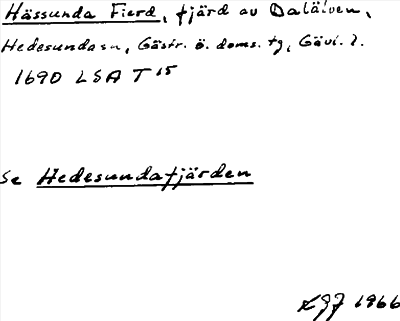 Hässunda Fierd, fjärd av Dalälven,
Hedesunda sn, Gästr. ö. doms. tg, Gävl. l.
1690 LSA T 15
Se Hedesundafjärden
1966